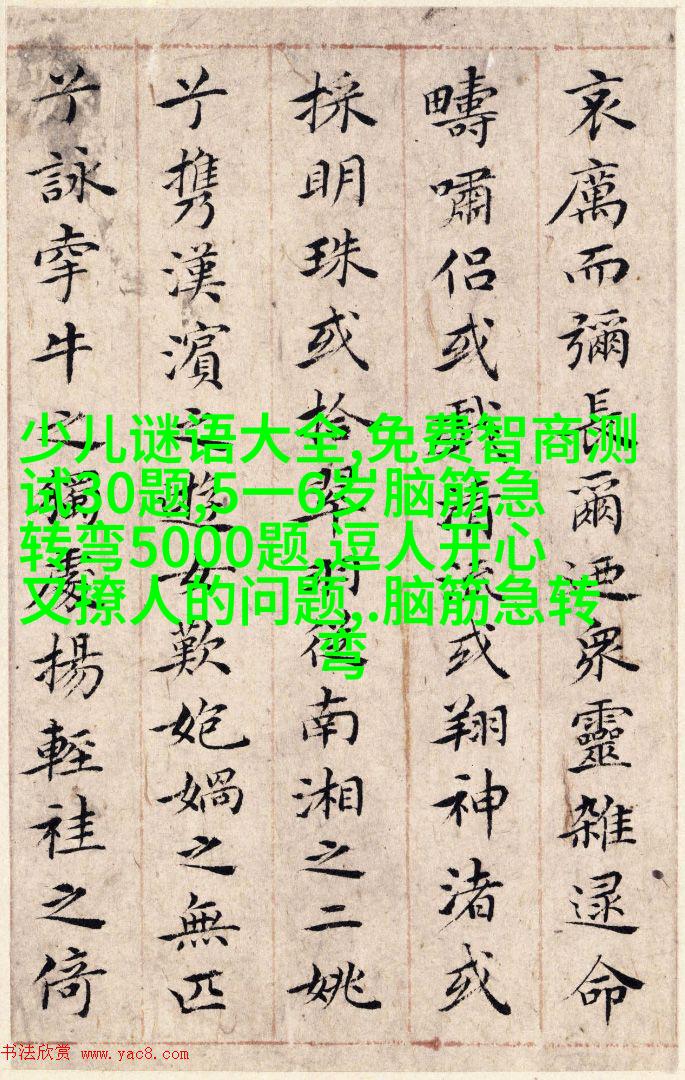 哀厲而彌長爾迺眾靈雜遝命
疇嘯侶或戲清流或翔神渚或
採明珠或拾翠羽從南湘之二姚
兮攜漢濱之遊女歎㚿媧之無匹
兮詠牽牛之獨處揚輕袿之倚
少儿谜语大全,免费智商测
试30题,5一6岁脑筋急
转弯5000题,逗人开心
又撩人的问题,.脑筋急转
弯
书法欣赏 www.yac8.com